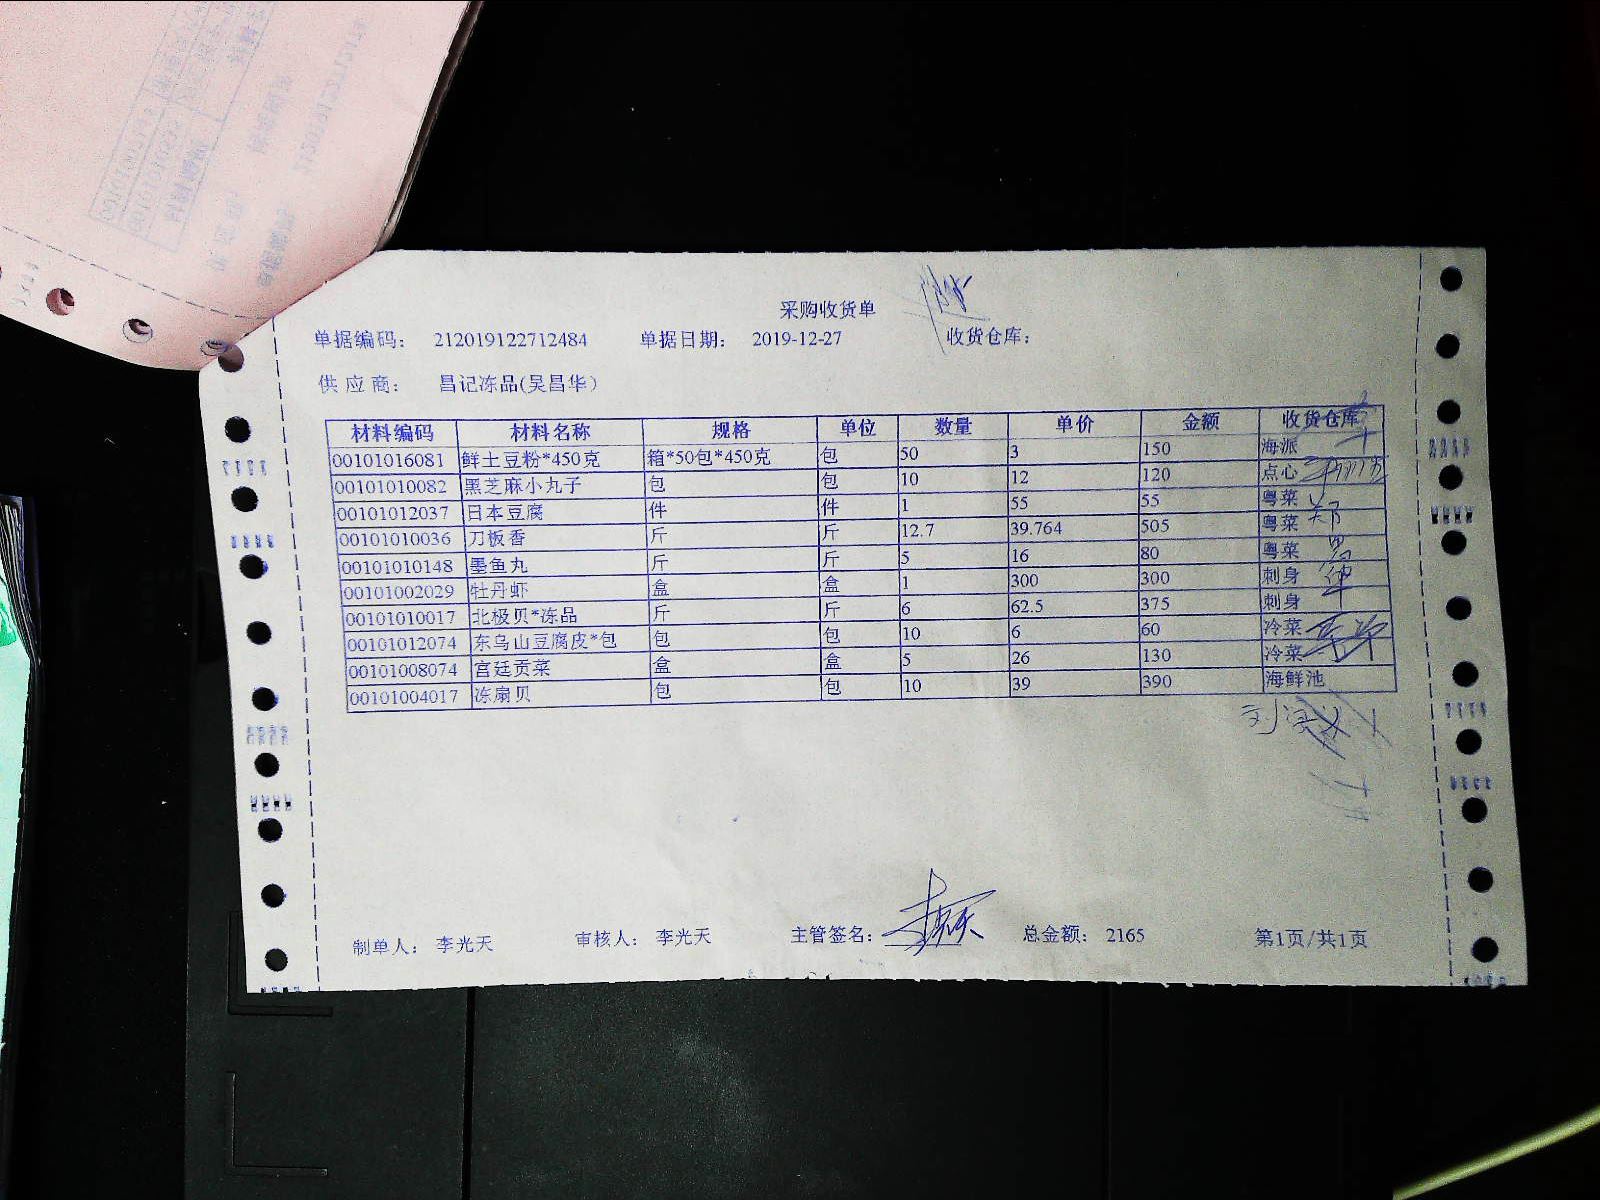 采购收货单
单据编码: 212019122712484 单据日期: 2019-12-27 收货仓库:
供应商: 昌记冻品(吴昌华)
材料编码 材料名称 规格 单位 数量 单价 金额 收货仓库
00101016081 鲜土豆粉*450克 箱*50包*450克 包 50 3 150 海派
00101010082 黑芝麻小丸子 包 包 10 12 120 点心
00101012037 日本豆腐 件 件 1 55 55 粤菜
00101010036 刀板香 斤 斤 12.7 39.764 505 粤菜
00101010148 墨鱼丸 斤 斤 5 16 80 粤菜
00101002029 牡丹虾 盒 盒 1 300 300 刺身
00101010017 北极贝*冻品 斤 斤 6 62.5 375 刺身
00101012074 东乌山豆腐皮*包 包 包 10 6 60 冷菜
00101008074 宫廷贡菜 盒 盒 5 26 130 冷菜
00101004017 冻扇贝 包 包 10 39 390 海鲜池
制单人: 李光天 审核人: 李光天 主管签名: 总金额: 2165 第1页/共1页